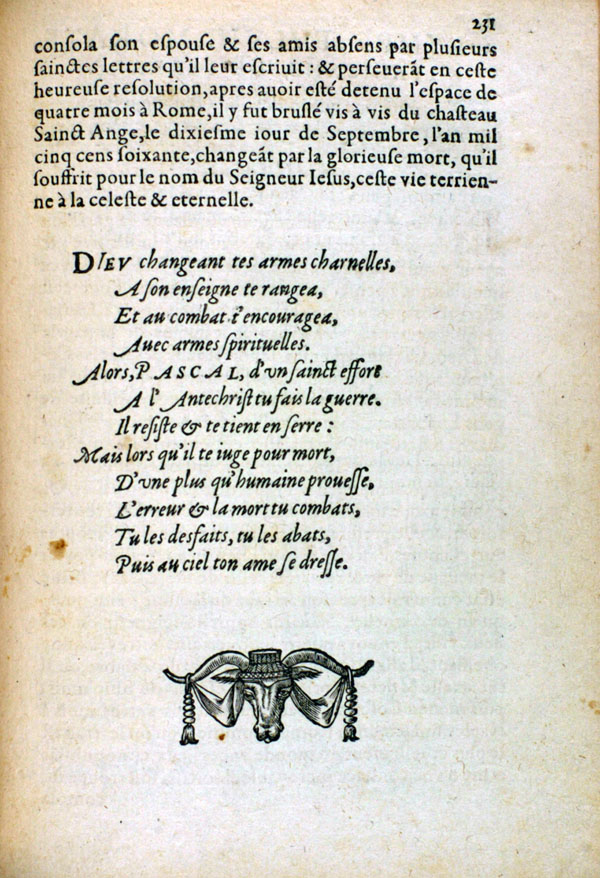 231
conſola ſon eſpouſe & ſes amis abſens par pluſieurs
ſainctes lettres qu'il leur eſcriuit : & perſeuerãt en ceſte
heureuse reſolution, apres auoir eſté detenu l'eſpace de
quatre mois à Rome, il y fut bruſlé vis à vis du chaſteau
Sainct Ange, le dixieſme iour de Septembre, l'an mil
cinq cens ſoixante, changeãt par la glorieuſe mort, qu'il
ſouffrit pour le nom du Seigneur Ieſus, ceſte vie terrien-
ne à la celeſte & eternelle.
DIEV changeant tes armes charnelles,
A ſon enſeigne te rangea,
Et au combat t'encouragea,
Auec armes ſpirituelles.
Alors, PASCAL, d'vn ſainct effort
A l'Antechriſt tu fais la guerre.
Il reſiſte & te tient en ſerre :
Mais lors qu'il te iuge pour mort,
D'vne plus qu'humaine proueſſe,
L'erreur & la mort tu combats,
Tu les desfaits, tu les abats,
Puis au ciel ton ame ſe dreſſe.